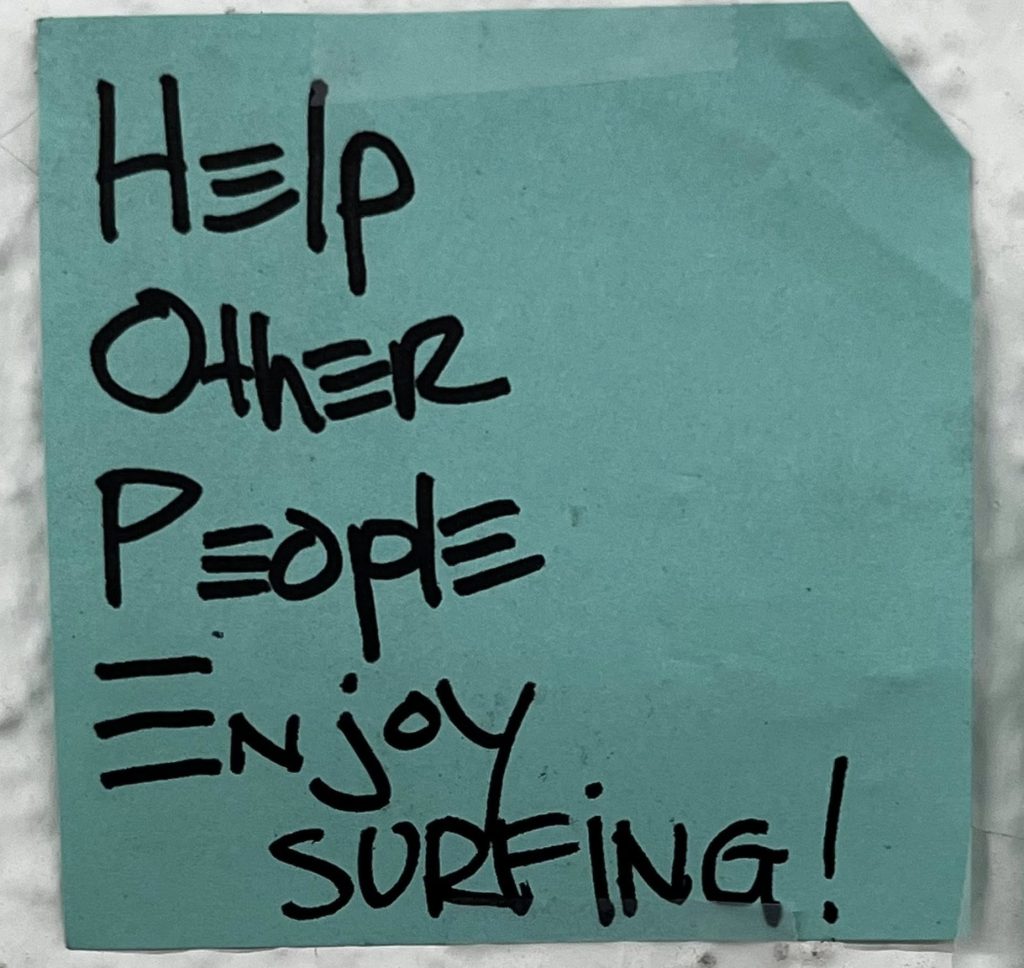 Help
Other
People
Enjoy
SURFING!